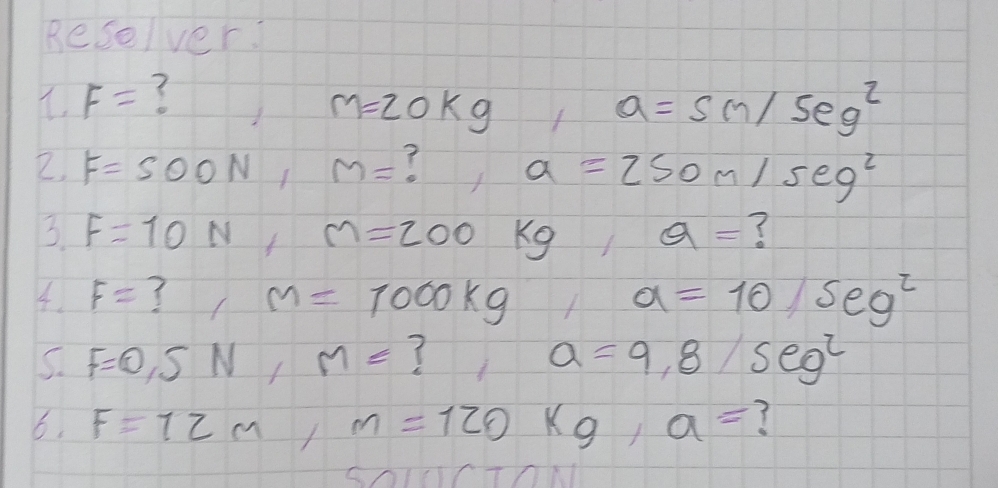 Resolver:
1. F = ? , m=20Kg , a = 5m/seg²
2. F=500N , m=? , a = 250m/seg²
3. F=10 N , m=200 Kg , a =?
4. F=? , m= 1000kg , a= 10/seg²
5. F=0,5 N , m=? , a=9,8/seg²
6. F=12m , m=120 Kg , a =?
SOLUCION